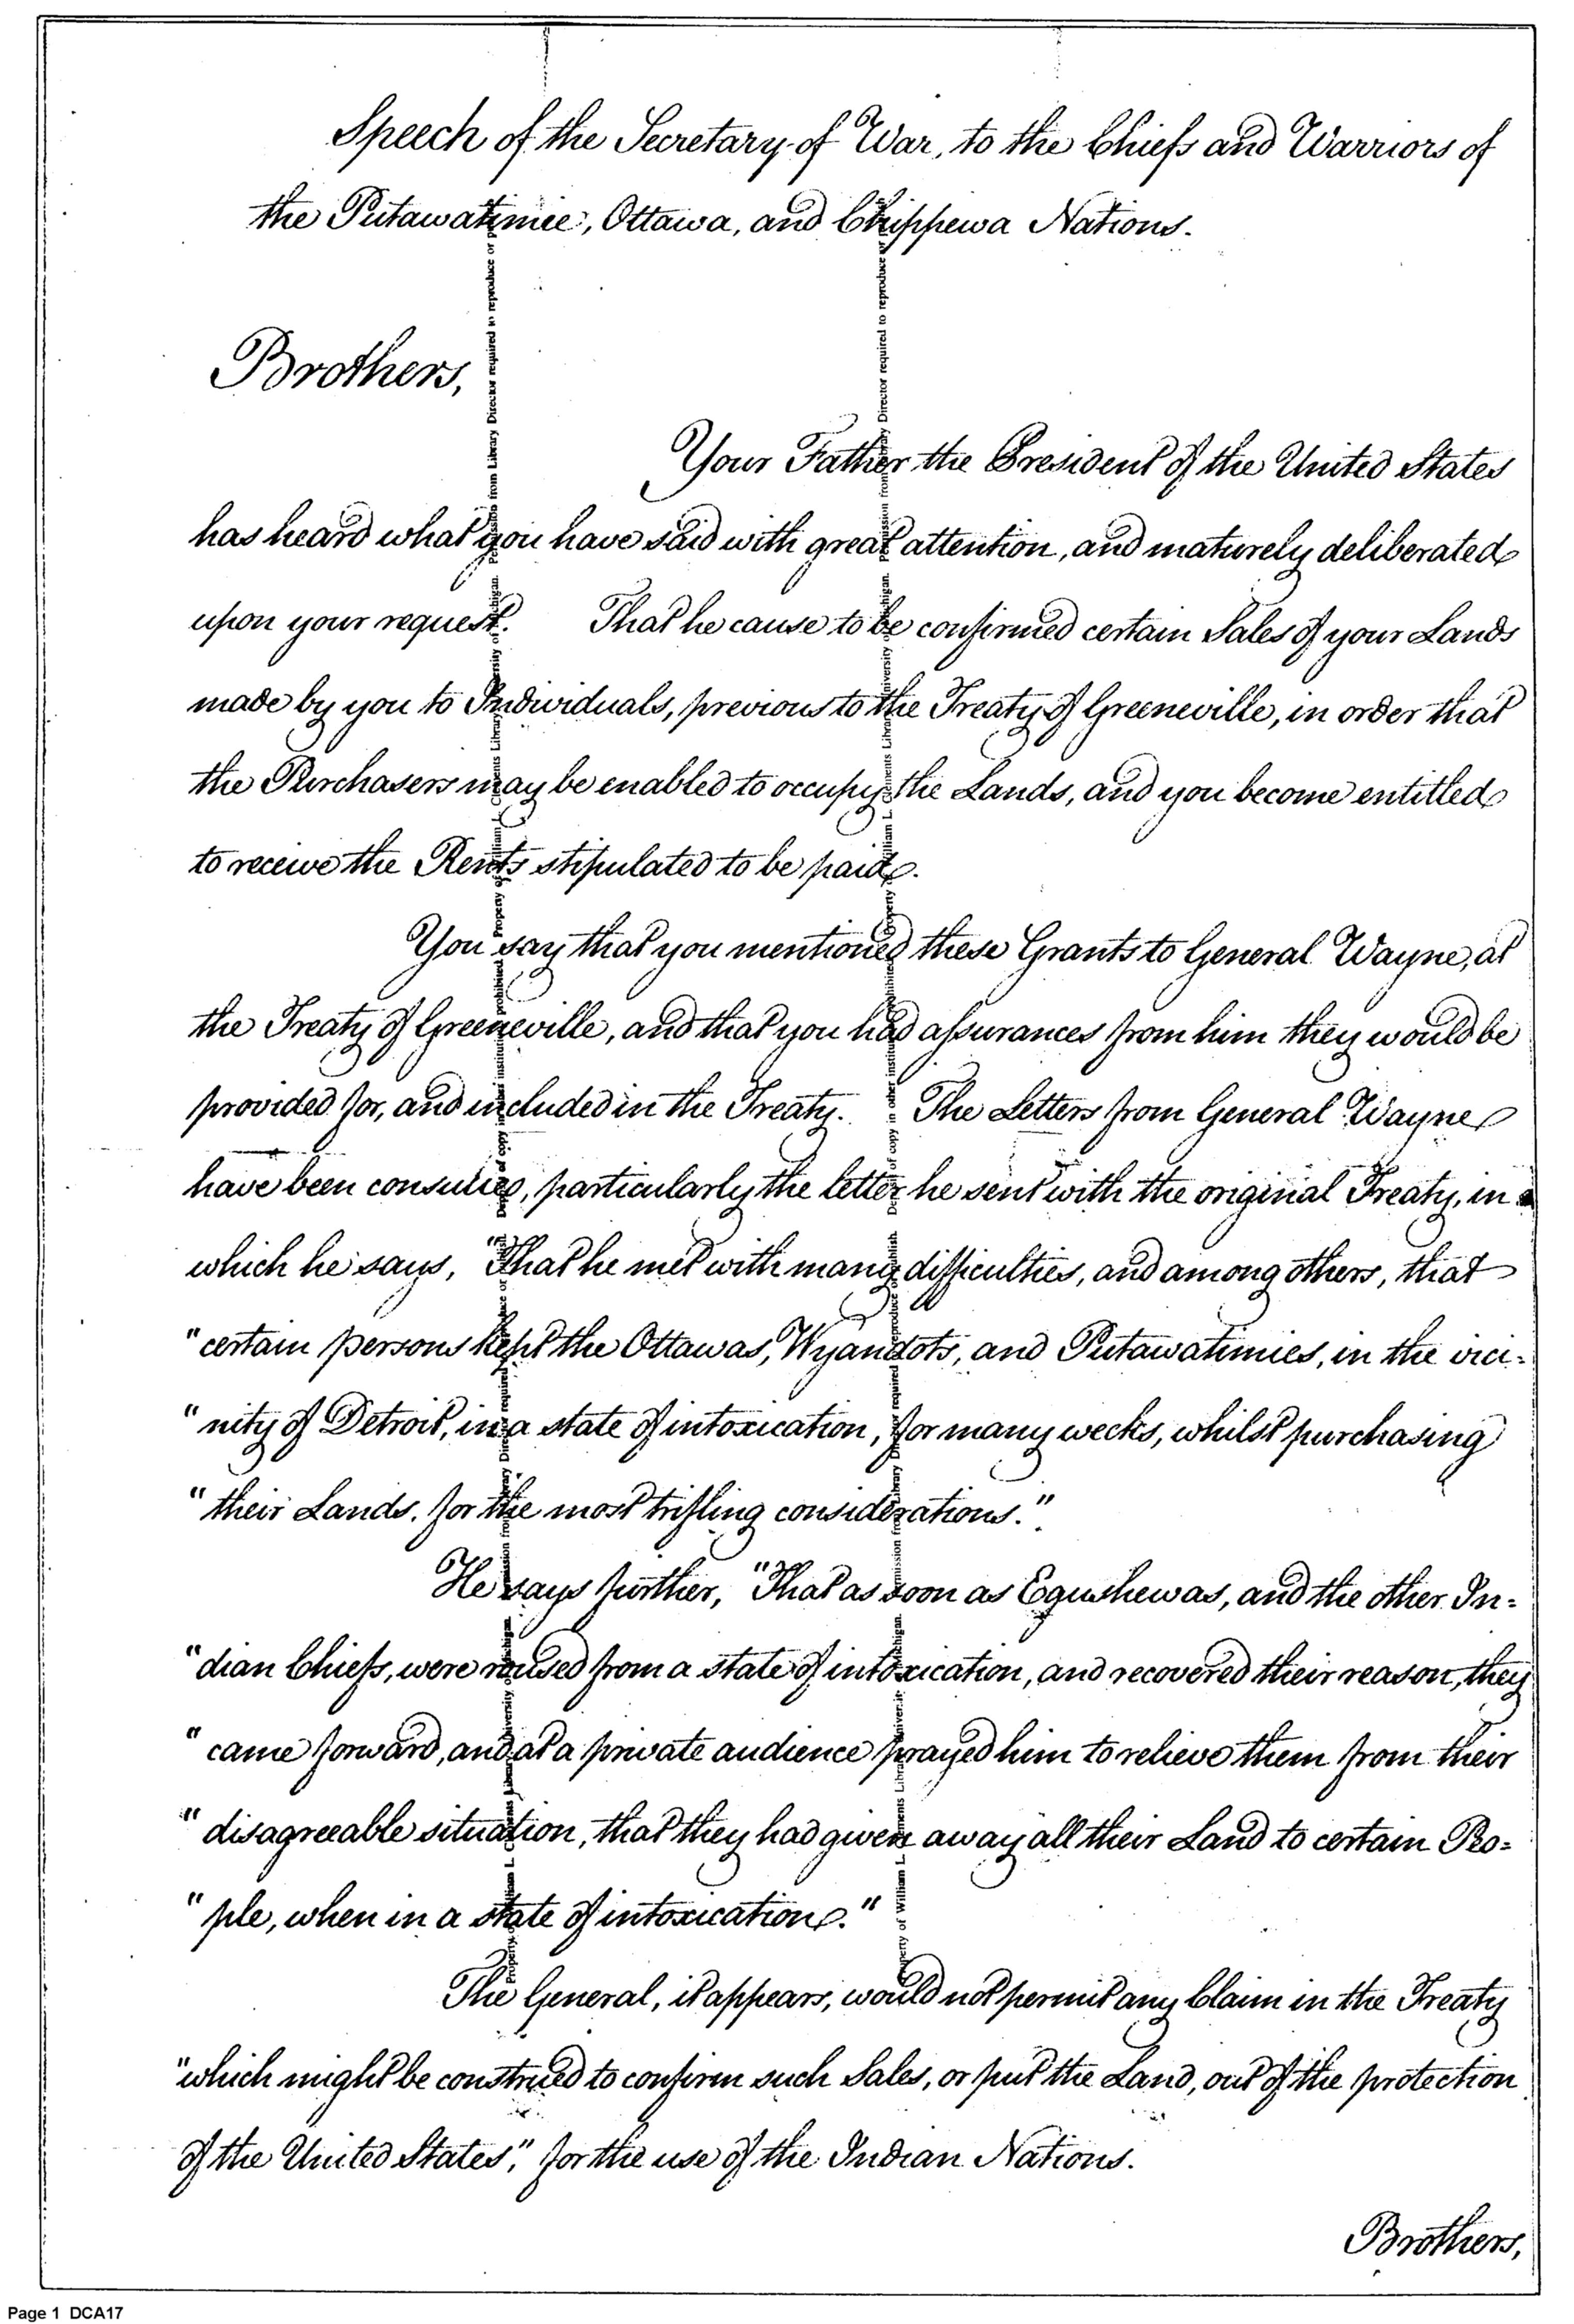 Speech of the Secretary of War, to the Chiefs and Warriors of
the Putawatimie, Ottawa, and Chippewa Nations.
Brothers,
Your Father the President of the United States
has heard what you have said with great attention, and maturely deliberated
upon your request. That he cause to be confirmed certain Sales of your Lands
made by you to Individuals, previous to the Treaty of Greeneville, in order that
the Purchasers may be enabled to occupy the Lands, and you become entitled
to receive the Rents stipulated to be paid.
You say that you mentioned these Grants to General Wayne, at
the Treaty of Greeneville, and that you had assurances from him they would be
provided for, and included in the Treaty. The Letters from General Wayne
have been consulted, particularly the letter he sent with the original Treaty, in
which he says, "That he met with many difficulties, and among others, that
"certain persons kept the Ottawas, Wyandots, and Putawatimies, in the vici-
"nity of Detroit, in a state of intoxication, for many weeks, whilst purchasing
"their Lands, for the most trifling considerations."
He says further, "That as soon as Egushewas, and the other In-
"dian Chiefs, were roused from a state of intoxication, and recovered their reason, they
"came forward, and at a private audience prayed him to relieve them from their
"disagreeable situation, that they had given away all their Land to certain Peo-
"ple, when in a state of intoxication."
The General, it appears, would not permit any Claim in the Treaty
"which might be construed to confirm such Sales, or put the Land, out of the protection
of the United States", for the use of the Indian Nations.
Brothers,
Page 1 DCA17